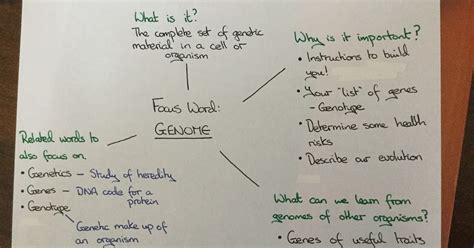 What is it?
The complete set of genetic
material in a cell or
organism
Why is it important?
• Instructions to build
you!
• Your "list" of genes
- Genotype
• Determine some health
risks
• Describe our evolution
Focus Word:
GENOME
Related words to
also focus on.
• Genetics – Study of heredity
• Genes – DNA code for a
protein
• Genotype
Genetic make up of
an organism
What can we learn from
genomes of other organisms?
• Genes of useful traits